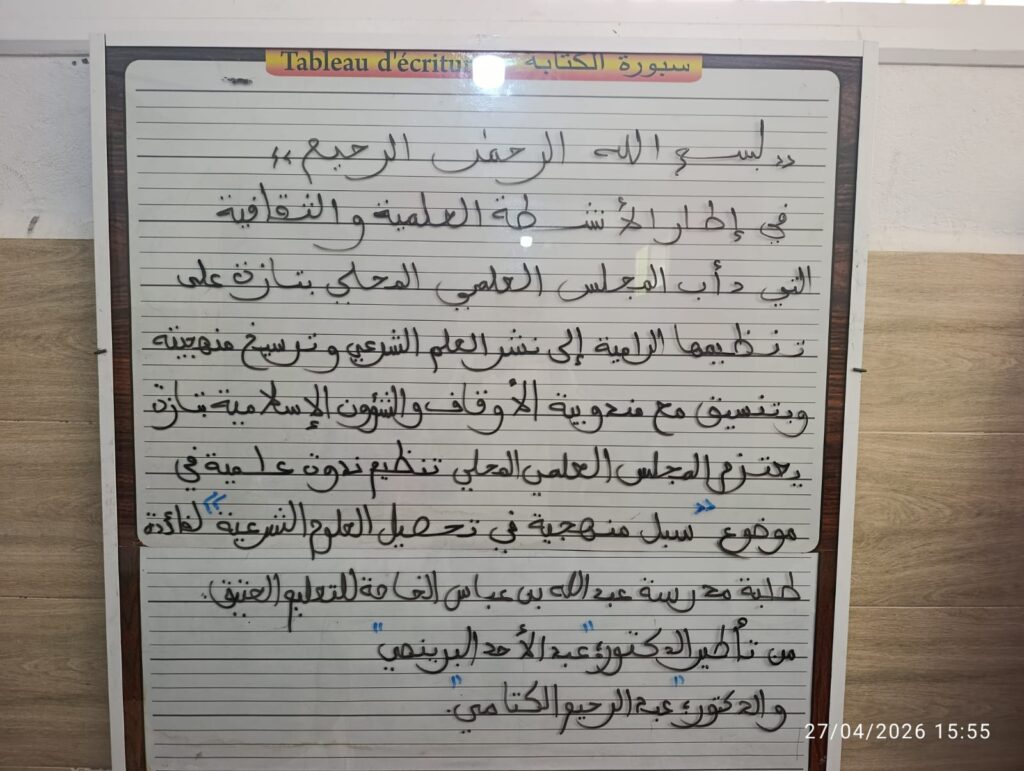 Tableau d'écriture سبورة الكتابة
„ بسم الله الرحمٰن الرحيم „
في إطار الأنشطة العلمية والثقافية
التي دأب المجلس العلمي المحلي بتازة على
تنظيمها الرامية إلى نشر العلم الشرعي وترسيخ منهجيته
وبتنسيق مع مندوبية الأوقاف والشؤون الإسلامية بتازة
يعتزم المجلس العلمي المحلي تنظيم ندوة علمية في
موضوع "سبل منهجية في تحصيل العلوم الشرعية" لفائدة
طلبة مدرسة عبد الله بن عباس الخاصة للتعليم العتيق.
من تأطير الدكتور: "عبد الأحد البرينصي"
والدكتور: "عبد الرحيم الكتامي".
27/04/2026 15:55